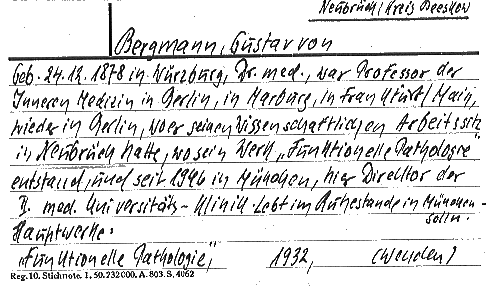 Neubrück, Kreis Beeskow
Bergmann, Gustav von
Geb. 24.12.1878 in Würzburg, Dr. med., war Professor der
Inneren Medizin in Berlin, in Marburg, in Frankfurt/Main,
wieder in Berlin, wo er seinen Wissenschaftlichen Arbeitssitz
in Neubrück hatte, wo sein Werk „Funktionelle Pathologie"
entstand, und seit 1946 in München, hier Direktor der
II. med. Universitäts-Klinik. Lebt im Ruhestande in München-
solln.
Hauptwerke:
„Funktionelle Pathologie", 1932, (wenden!)
Reg. 10. Stichnote. I, 50. 232000. A. 803. S. 4062